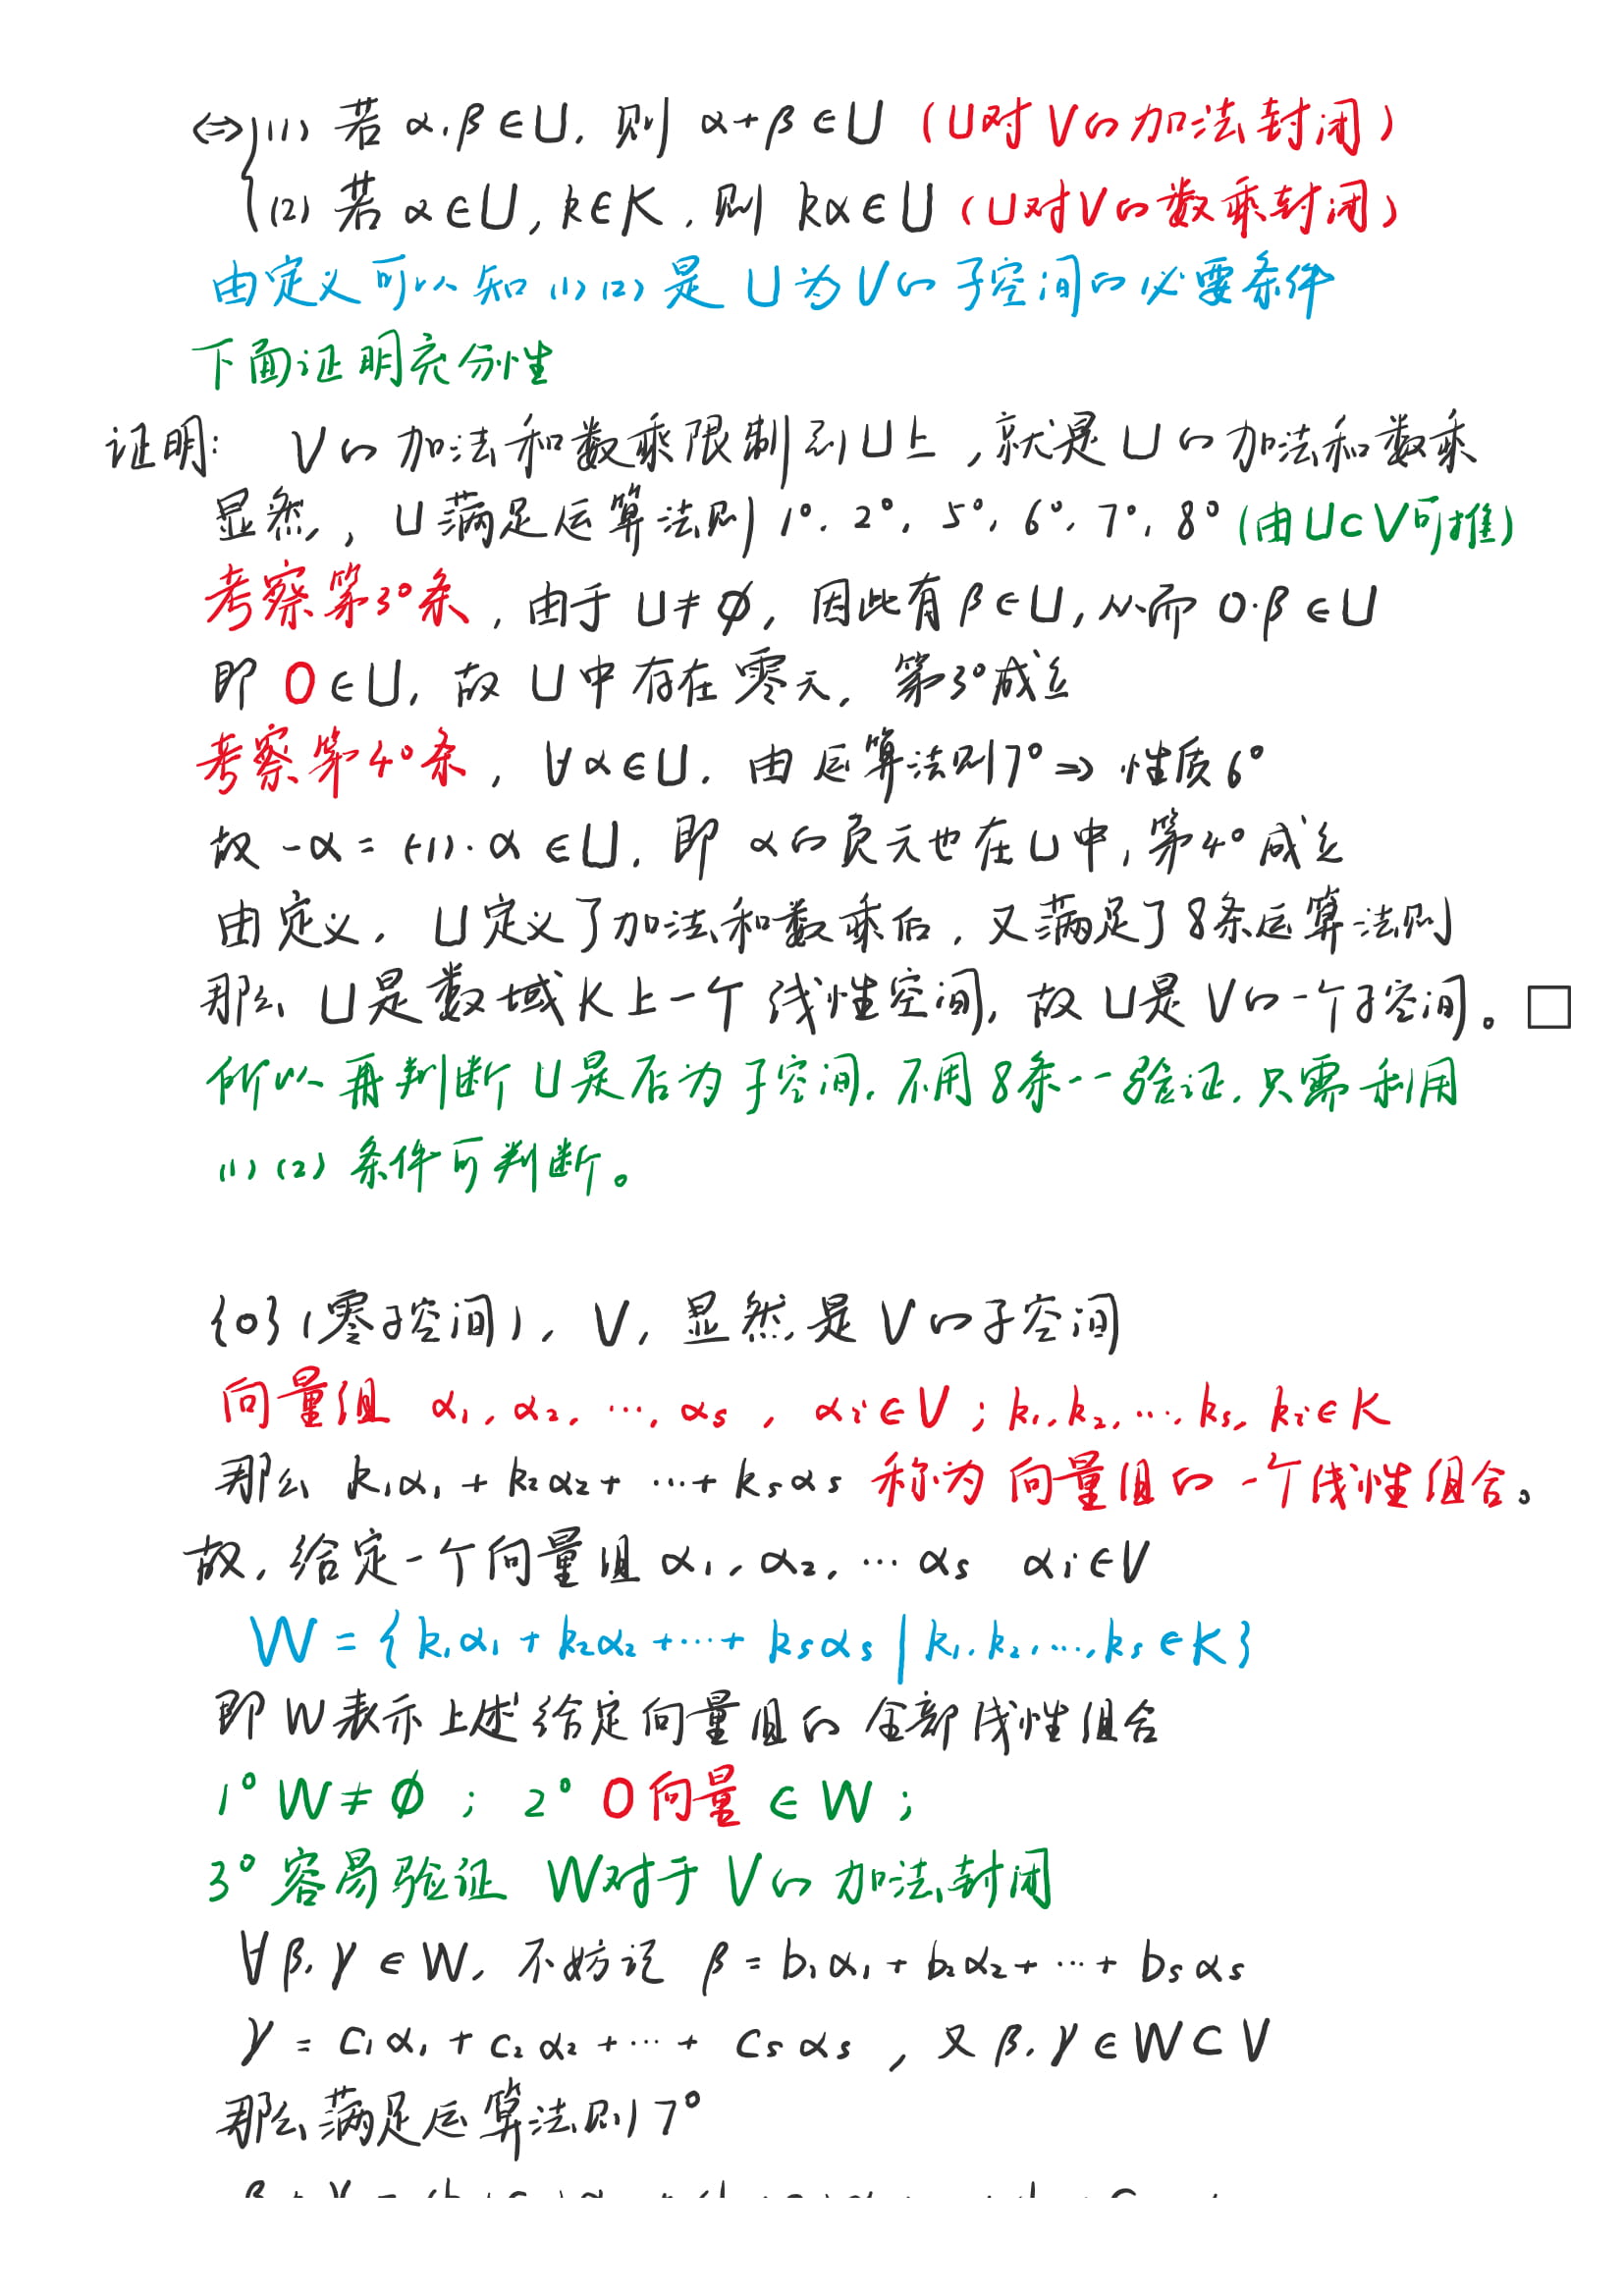 ⇔ { (1) 若 α,β∈U, 则 α+β∈U (U对V的加法封闭)
(2) 若 α∈U, k∈K, 则 kα∈U (U对V的数乘封闭)
由定义可以知 (1)(2) 是 U为V的子空间的必要条件
下面证明充分性
证明: V的加法和数乘限制到U上,就是U的加法和数乘
显然, U满足运算法则 1°, 2°, 5°, 6°, 7°, 8° (由U⊂V可推)
考察第3°条, 由于U≠∅, 因此有β∈U, 从而 0·β∈U
即 0∈U, 故U中存在零元, 第3°成立
考察第4°条, ∀α∈U, 由运算法则7° ⇒ 性质6°
故 -α = (-1)·α ∈U, 即 α的负元也在U中, 第4°成立
由定义, U定义了加法和数乘后, 又满足了8条运算法则
那么U是数域K上一个线性空间, 故U是V的一个子空间。□
所以再判断U是否为子空间, 不用8条一一验证, 只需利用
(1)(2) 条件可判断。
{0} (零子空间), V, 显然是V的子空间
向量组 α₁, α₂, ⋯, αₛ, αᵢ∈V; k₁, k₂, ⋯, kₛ, kᵢ∈K
那么 k₁α₁ + k₂α₂ + ⋯ + kₛαₛ 称为向量组的一个线性组合。
故, 给定一个向量组 α₁, α₂, ⋯ αₛ αᵢ∈V
W = {k₁α₁ + k₂α₂ + ⋯ + kₛαₛ | k₁, k₂, ⋯, kₛ∈K}
即W表示上述给定向量组的全部线性组合
1° W≠∅ ; 2° 0向量 ∈ W ;
3° 容易验证 W对于V的加法封闭
∀β, γ ∈ W, 不妨设 β = b₁α₁ + b₂α₂ + ⋯ + bₛαₛ
γ = c₁α₁ + c₂α₂ + ⋯ + cₛαₛ , 又 β, γ ∈ W ⊂ V
那么满足运算法则7°